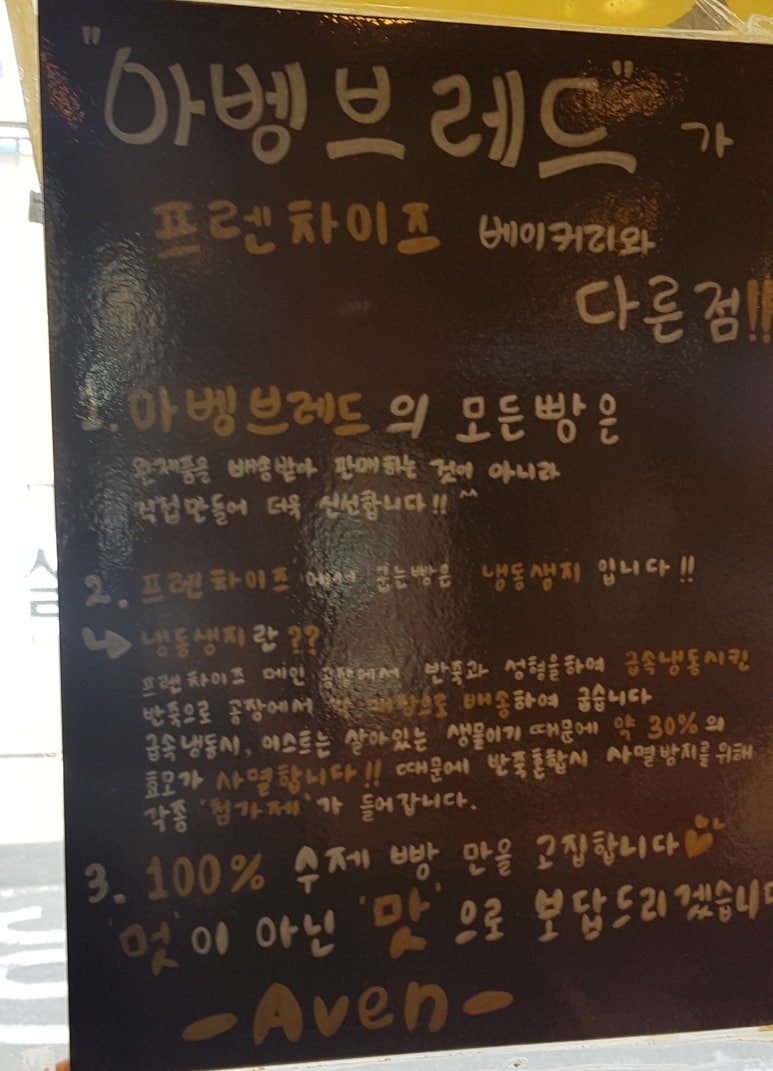 "아벵브레드"가
프렌차이즈 베이커리와
다른점!!
1. 아벵브레드의 모든빵은
완제품을 배송받아 판매하는 것이 아니라
직접만들어 더욱 신선합니다!! ^^
2. 프렌차이즈에서 굽는빵은 냉동생지 입니다!!
↳ 냉동생지란??
프렌차이즈 메인 공장에서 반죽과 성형을하여 급속냉동시킨
반죽으로 공장에서 각 매장으로 배송하여 굽습니다
급속냉동시, 이스트는 살아있는 생물이기때문에 약 30%의
효모가 사멸합니다!! 때문에 반죽혼합시 사멸방지를위해
각종 '첨가제'가 들어갑니다.
3. 100% 수제 빵 만을 고집합니다
'멋'이 아닌 '맛'으로 보답드리겠습니다
-Aven-